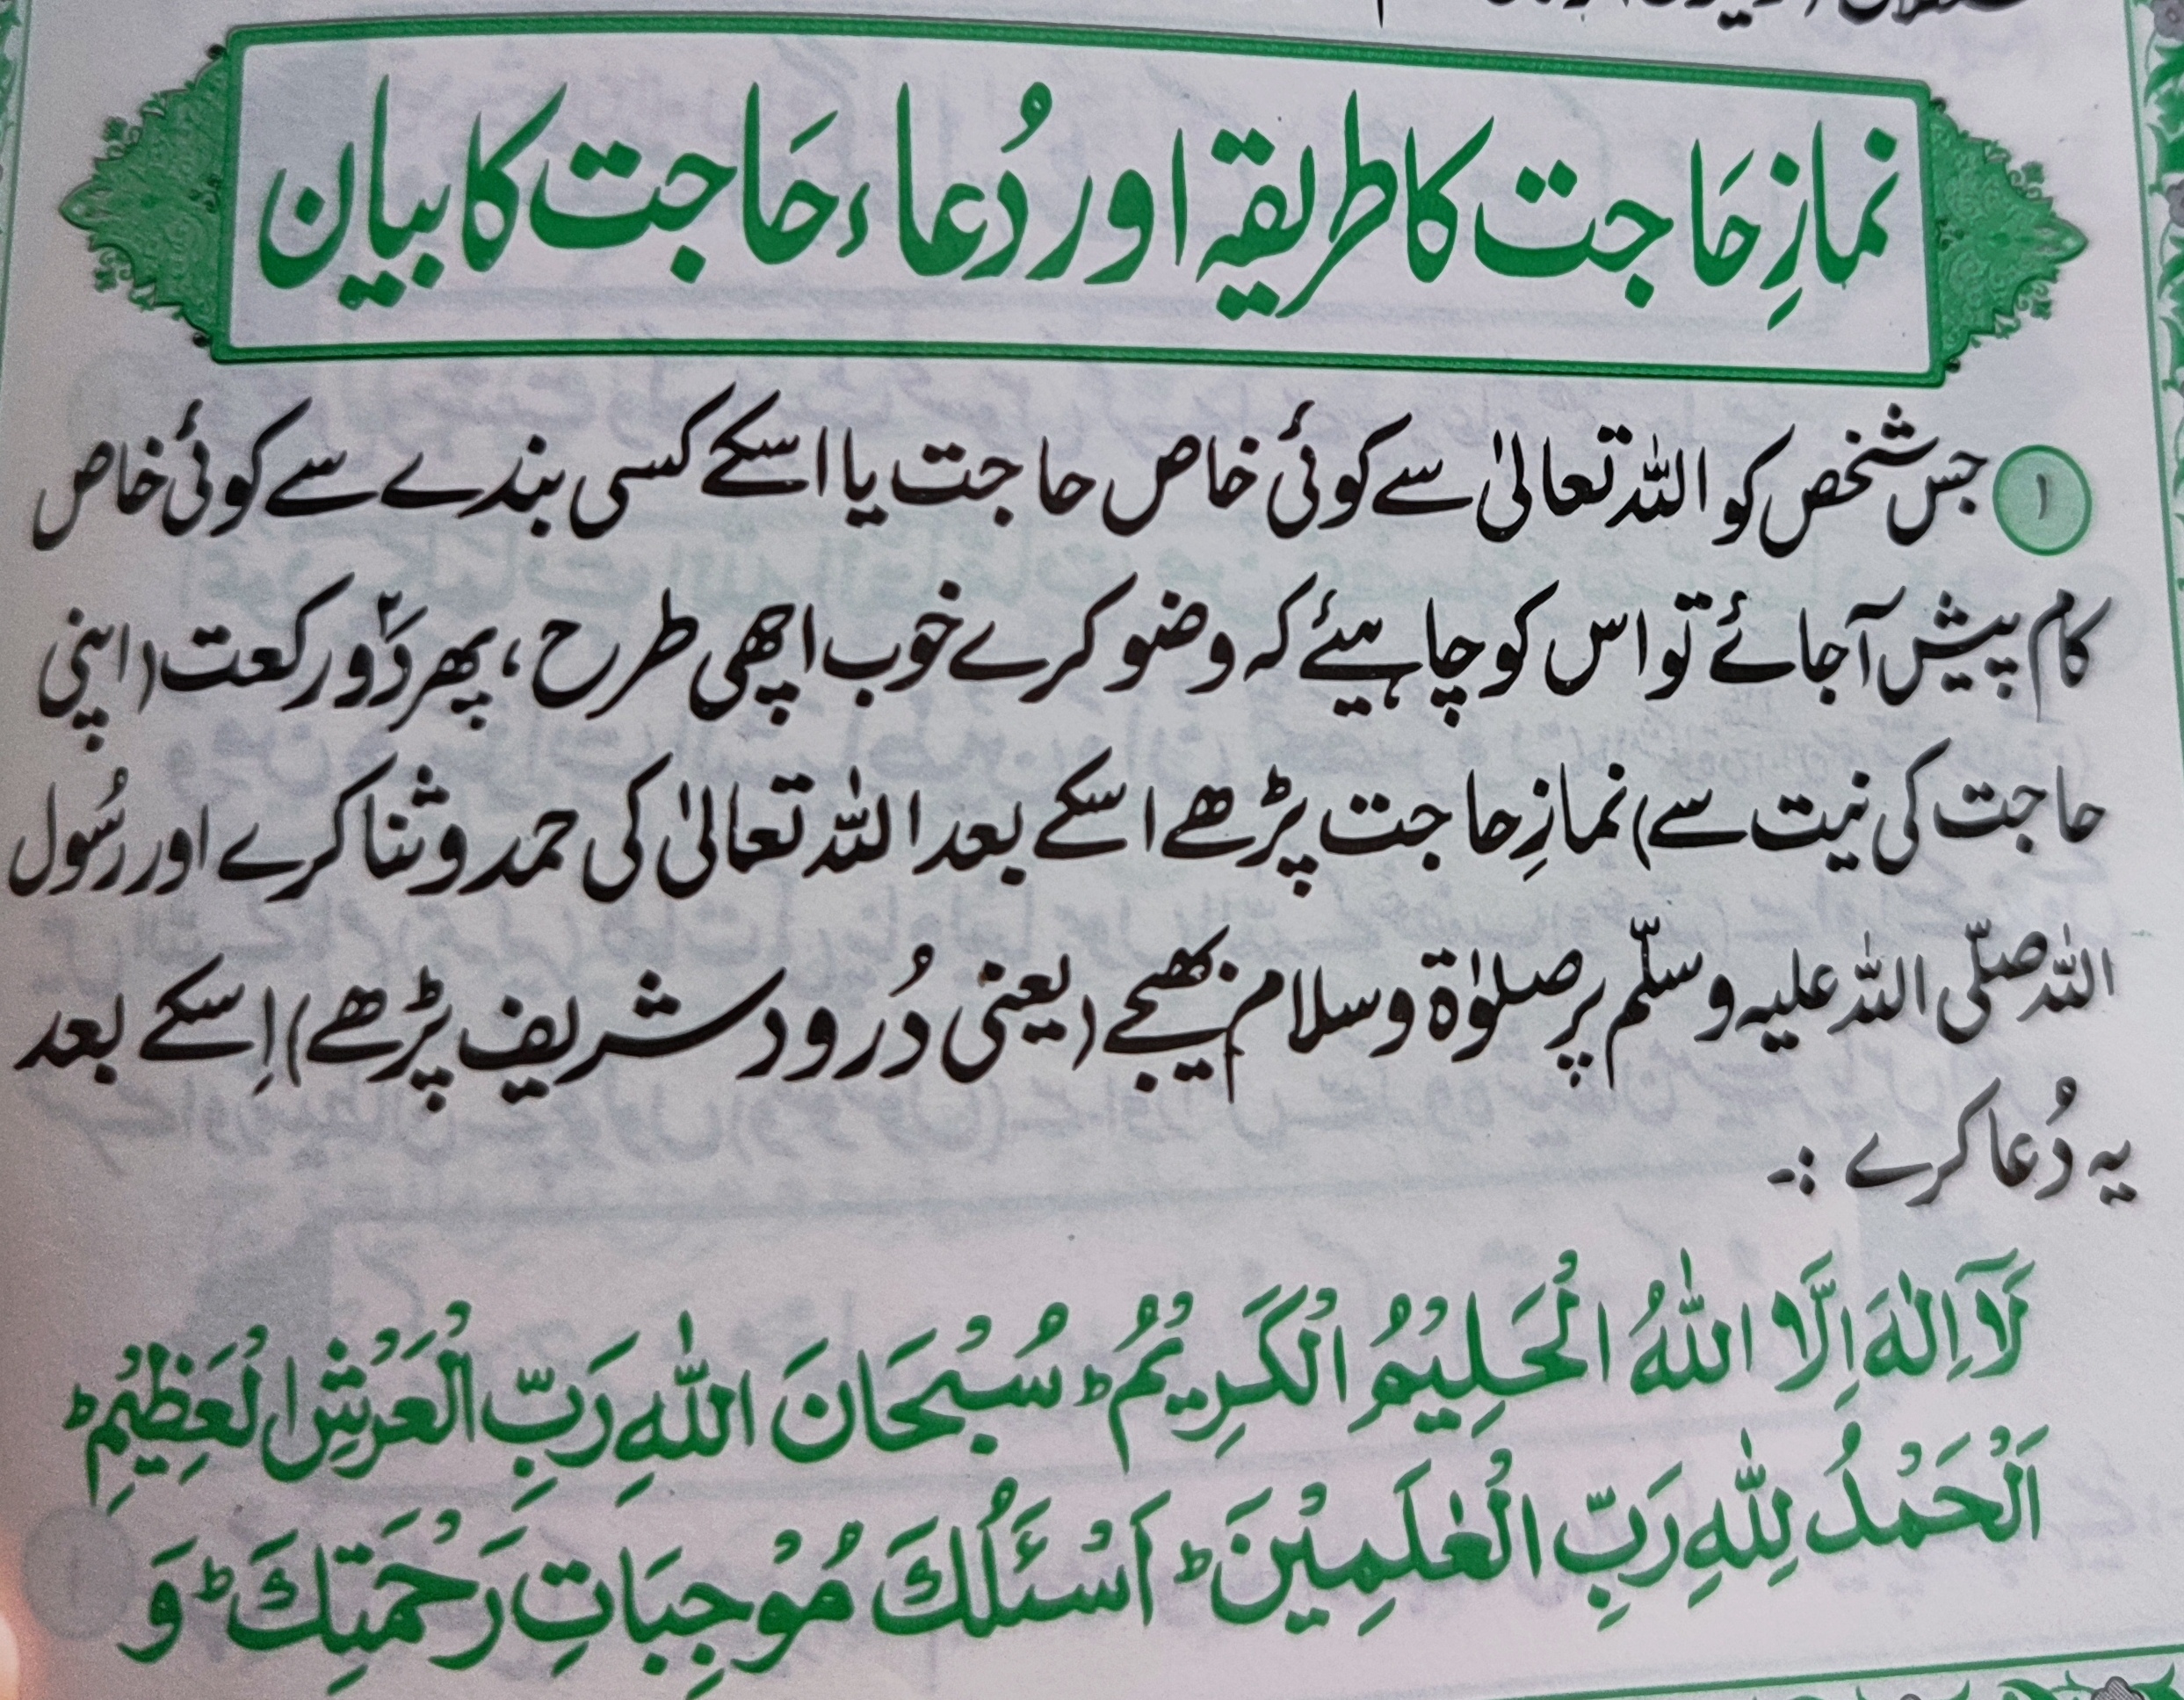 نمازِ حَاجت کا طریقہ اور دُعاء حَاجت کا بیان
۱ جس شخص کو اللہ تعالیٰ سے کوئی خاص حاجت یا اسکے کسی بندے سے کوئی خاص
کام پیش آجائے تو اس کو چاہیئے کہ وضو کرے خوب اچھی طرح ، پھر دَو۲ رکعت (اپنی
حاجت کی نیت سے) نمازِ حاجت پڑھے اسکے بعد اللہ تعالیٰ کی حمد و ثنا کرے اور رسُول
اللہ صلّی اللہ علیہ وسلّم پر صلوٰۃ و سلام بھیجے (یعنی دُرود شریف پڑھے) اِسکے بعد
یہ دُعا کرے :۔
لَآ اِلٰهَ اِلَّا اللّٰهُ الْحَلِيْمُ الْكَرِيْمُ ؕ سُبْحَانَ اللّٰهِ رَبِّ الْعَرْشِ الْعَظِيْمِ ؕ
اَلْحَمْدُ لِلّٰهِ رَبِّ الْعٰلَمِيْنَ ؕ اَسْئَلُكَ مُوْجِبَاتِ رَحْمَتِكَ ؕ وَ